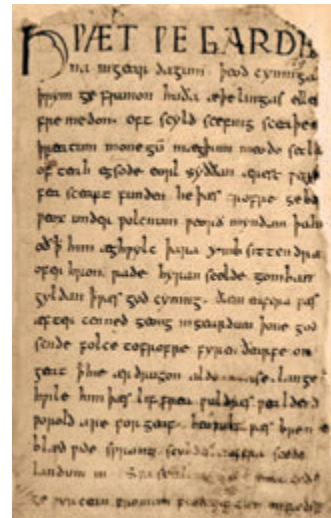 HǷÆT ǷE GARDE
na ingear dagum. þeod cyninga
þrym ge frunon huða æþelingas elle
fre medon. oft scyld scefing sceaþe
þreatum monegū mægþum meodo setla
of teah egsode eorl syððan ærest ƿear
fea sceaft funden heþæs frofre geba
ƿeox under ƿolcnum ƿeorð myndum þah
oð ꝥ him æghƿylc þara ymb sittendra
ofer hron rade hyran scolde gomban
gyldan ꝥ ƿæs god cyning. ðæm eafera ƿæs
æfter cenned geong ingeardum þone god
sende folce tofrofre fyren ðearfe on
geat ꝥ hie ær drugon aldor ase. lange
hƿile him þæs lif frea ƿuldres ƿealdend
ƿorold are for geaf. beoƿulf ƿæs breme
blæd ƿide sprang scyldes eafera scede
landum in
ge ƿyrcean fromum feoh giftum